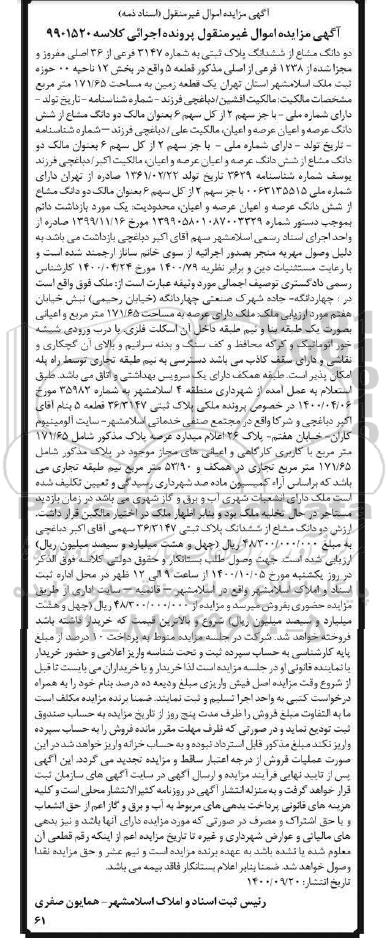 آگهی مزایده اموال غیرمنقول (اسناد ذمه)
آگهی مزایده اموال غیرمنقول پرونده اجرائی کلاسه ۹۹۰۱۵۲۰
دو دانگ مشاع از ششدانگ پلاک ثبتی به شماره ۳۱۴۷ فرعی از ۳۶ اصلی مفروز و
مجزا شده از ۱۲۳۸ فرعی از اصلی مذکور قطعه ۵ واقع در بخش ۱۲ ناحیه ۰۰ حوزه
ثبت ملک اسلامشهر استان تهران یک قطعه زمین به مساحت ۱۷۱/۶۵ متر مربع
مشخصات مالکیت: مالکیت افشین/دباغچی فرزند - شماره شناسنامه - تاریخ تولد -
دارای شماره ملی - با جز سهم ۲ از کل سهم ۶ بعنوان مالک دو دانگ مشاع از شش
دانگ عرصه و اعیان عرصه و اعیان، مالکیت علی / دباغچی فرزند – شماره شناسنامه
- تاریخ تولد - دارای شماره ملی - با جز سهم ۲ از کل سهم ۶ بعنوان مالک دو
دانگ مشاع از شش دانگ عرصه و اعیان عرصه و اعیان، مالکیت اکبر/ دباغچی فرزند
یوسف شماره شناسنامه ۳۶۲۹ تاریخ تولد ۱۳۶۱/۰۲/۲۲ صادره از تهران دارای
شماره ملی ۰۰۶۳۱۳۵۵۱۵ با جز سهم ۲ از کل سهم ۶ بعنوان مالک دو دانگ مشاع
از شش دانگ عرصه و اعیان عرصه و اعیان، محدودیت: یک مورد بازداشت دائم
بموجب دستور شماره ۱۳۹۹۰۵۸۰۱۰۸۷۰۰۳۳۲۹ مورخ ۱۳۹۹/۱۱/۱۶ صادره از
واحد اجرای اسناد رسمی اسلامشهر سهم آقای اکبر دباغچی بازداشت می باشد به
دلیل وصول مهریه منجر بصدور اجرائیه از سوی خانم ساناز ارجمند شده است و
با رعایت مستثنیات دین و برابر نظریه ۱۴۰۰/۷۹ مورخ ۱۴۰۰/۰۴/۲۴ کارشناس
رسمی دادگستری توصیف اجمالی مورد وثیقه عبارت است از: ملک فوق واقع است
در : چهاردانگه- جاده شهرک صنعتی چهاردانگه (خیابان رحیمی) نبش خیابان
هفتم مورد ارزیابی ملک: ملک دارای عرصه به مساحت ۱۷۱/۶۵ متر مربع و اعیانی
بصورت یک طبقه بنا و نیم طبقه داخل آن اسکلت فلزی، با درب ورودی شیشه
خور اتوماتیک و کرکره محافظ و کف سنگ و بدنه سرامیک و بالای آن گچکاری و
نقاشی و دارای سقف کاذب می باشد دسترسی به نیم طبقه تجاری توسط راه پله
امکان پذیر است. طبقه همکف دارای یک سرویس بهداشتی و اتاق می باشد. طبق
استعلام به عمل آمده از شهرداری منطقه ۴ اسلامشهر به شماره ۳۵۹۸۲ مورخ
۱۴۰۰/۰۴/۰۶ در خصوص پرونده ملکی پلاک ثبتی ۳۶/۳۱۴۷ قطعه ۵ بنام آقای
اکبر دباغچی و شرکا واقع در مجتمع صنفی خدماتی اسلامشهر- سایت آلومینیوم
کاران- خیابان هفتم- پلاک ۲۶ اعلام میدارد عرصه پلاک مذکور شامل ۱۷۱/۶۵
متر مربع با کاربری کارگاهی و اعیانی های مجاز موجود در پلاک مذکور شامل
۱۷۱/۶۵ متر مربع تجاری در همکف و ۵۳/۹۰ متر مربع نیم طبقه تجاری می
باشد که براساس آراء کمیسیون ماده صد شهرداری رسیدگی و تعیین تکلیف شده
است ملک دارای انشعابات شهری آب و برق و گاز شهری می باشد در زمان بازدید
مستأجر در حال تخلیه ملک بود و بنابر اظهار ملک در اختیار مالکین قرار داشت.
ارزش دو دانگ مشاع از ششدانگ پلاک ثبتی ۳۶/۳۱۴۷ سهمی آقای اکبر دباغچی
به مبلغ ۴۸/۳۰۰/۰۰۰/۰۰۰ ریال (چهل و هشت میلیارد و سیصد میلیون ریال)
ارزیابی شده است. جهت وصول طلب بستانکار و حقوق دولتی کلاسه فوق الذکر
در روز یکشنبه مورخ ۱۴۰۰/۱۰/۰۵ از ساعت ۹ الی ۱۲ ظهر در محل اداره ثبت
اسناد و املاک اسلامشهر واقع در اسلامشهر – قائمیه – سایت اداری از طریق
مزایده حضوری بفروش میرسد و مزایده از ۴۸/۳۰۰/۰۰۰/۰۰۰ ریال (چهل و هشت
میلیارد و سیصد میلیون ریال) شروع و بالاترین قیمتی که خریدار داشته باشد
فروخته خواهد شد. شرکت در جلسه مزایده منوط به پرداخت ۱۰ درصد از مبلغ
پایه کارشناسی به حساب سپرده ثبت و تحت شناسه واریز اعلامی و حضور خریدار
یا نماینده قانونی او در جلسه مزایده است لذا خریدار و یا خریداران می بایست تا قبل
از شروع وقت مزایده اصل فیش واریزی مبلغ ودیعه ده درصد بنام خود را به همراه
درخواست کتبی به واحد اجرا تسلیم و ثبت نمایند. ضمنا برنده مزایده مکلف است
ما به التفاوت مبلغ فروش را ظرف مدت پنج روز از تاریخ مزایده به حساب صندوق
ثبت تودیع نماید و در صورتی که ظرف مهلت مقرر مانده فروش را به حساب سپرده
واریز نکند مبلغ مذکور قابل استرداد نبوده و به حساب خزانه واریز خواهد شد در این
صورت عملیات فروش از درجه اعتبار ساقط و مزایده تجدید می گردد. این آگهی
پس از تایید نهایی فرآیند مزایده و ارسال آگهی در سایت آگهی های سازمان ثبت
قرار خواهد گرفت و به منزله انتشار آگهی در روزنامه کثیر الانتشار محلی است و کلیه
هزینه های قانونی پرداخت بدهی های مربوط به آب و برق و گاز اعم از حق انشعاب
و یا حق اشتراک و مصرف در صورتی که مورد مزایده دارای آنها باشد و نیز بدهی
های مالیاتی و عوارض شهرداری و غیره تا تاریخ مزایده اعم از اینکه رقم قطعی آن
معلوم شده یا نشده باشد به عهده برنده مزایده است و نیم عشر و حق مزایده نقدا
وصول خواهد شد. ضمنا بنابر اعلام بستانکار فاقد بیمه می باشد.
تاریخ انتشار: ۱۴۰۰/۰۹/۲۰
رئیس ثبت اسناد و املاک اسلامشهر- همایون صفری
۶۱